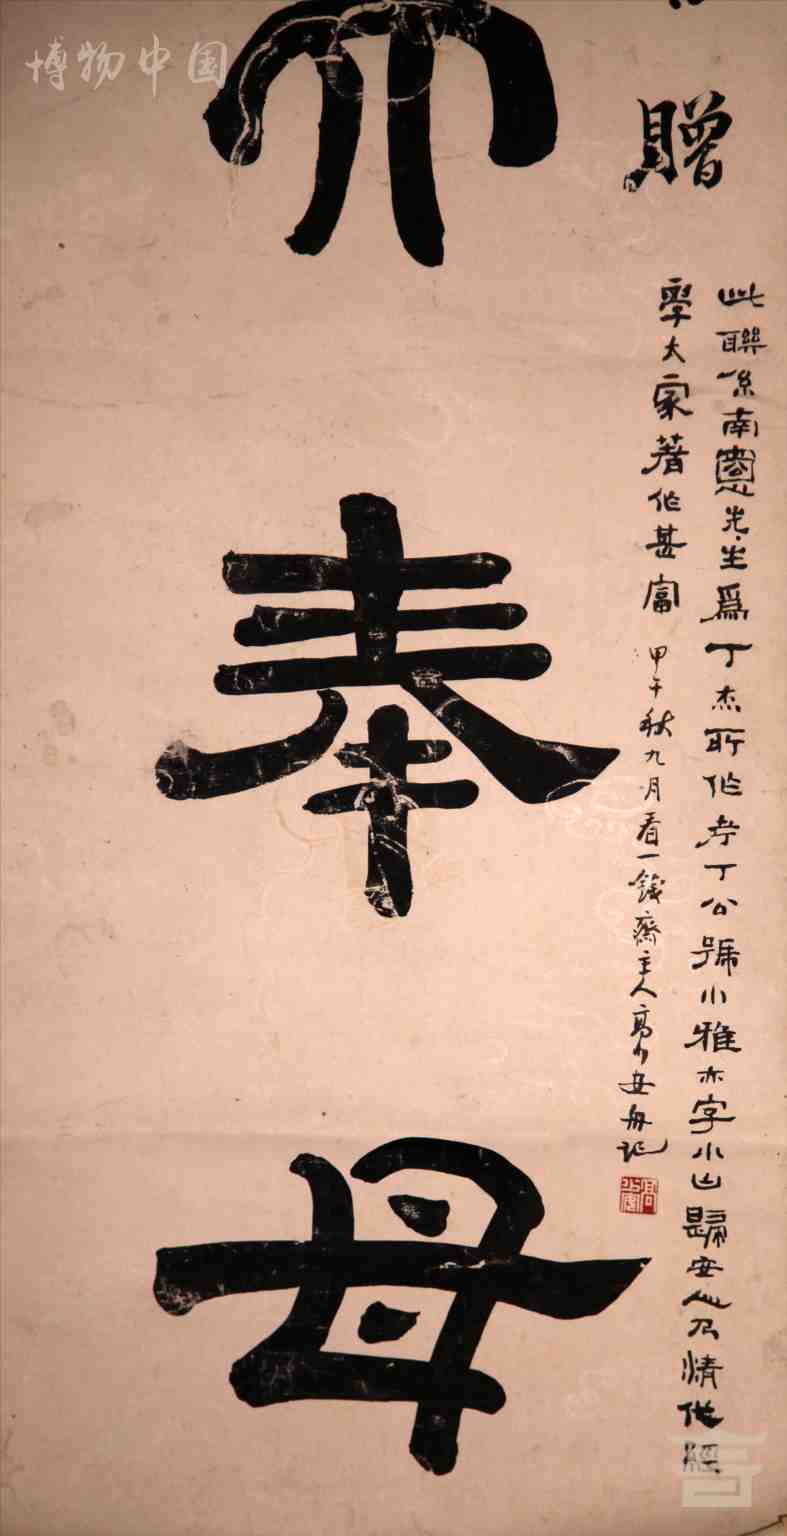 博物中国
贈
奉
母
此聯係南窗先生爲丁杰所作考丁公號小雅亦字小山歸安人乃清代經
學大家著作甚富
甲午秋九月看一錢齋主人高少安舟記